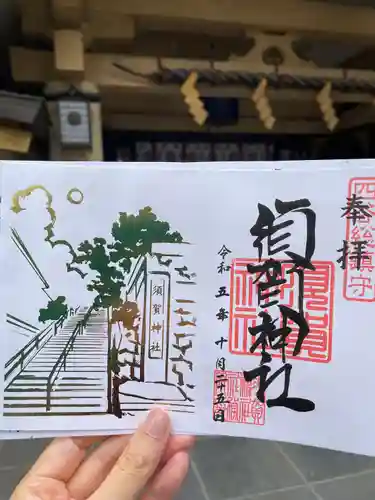 四谷総鎮守
奉拝
須賀神社
令和五年十月廿五日
須賀神社